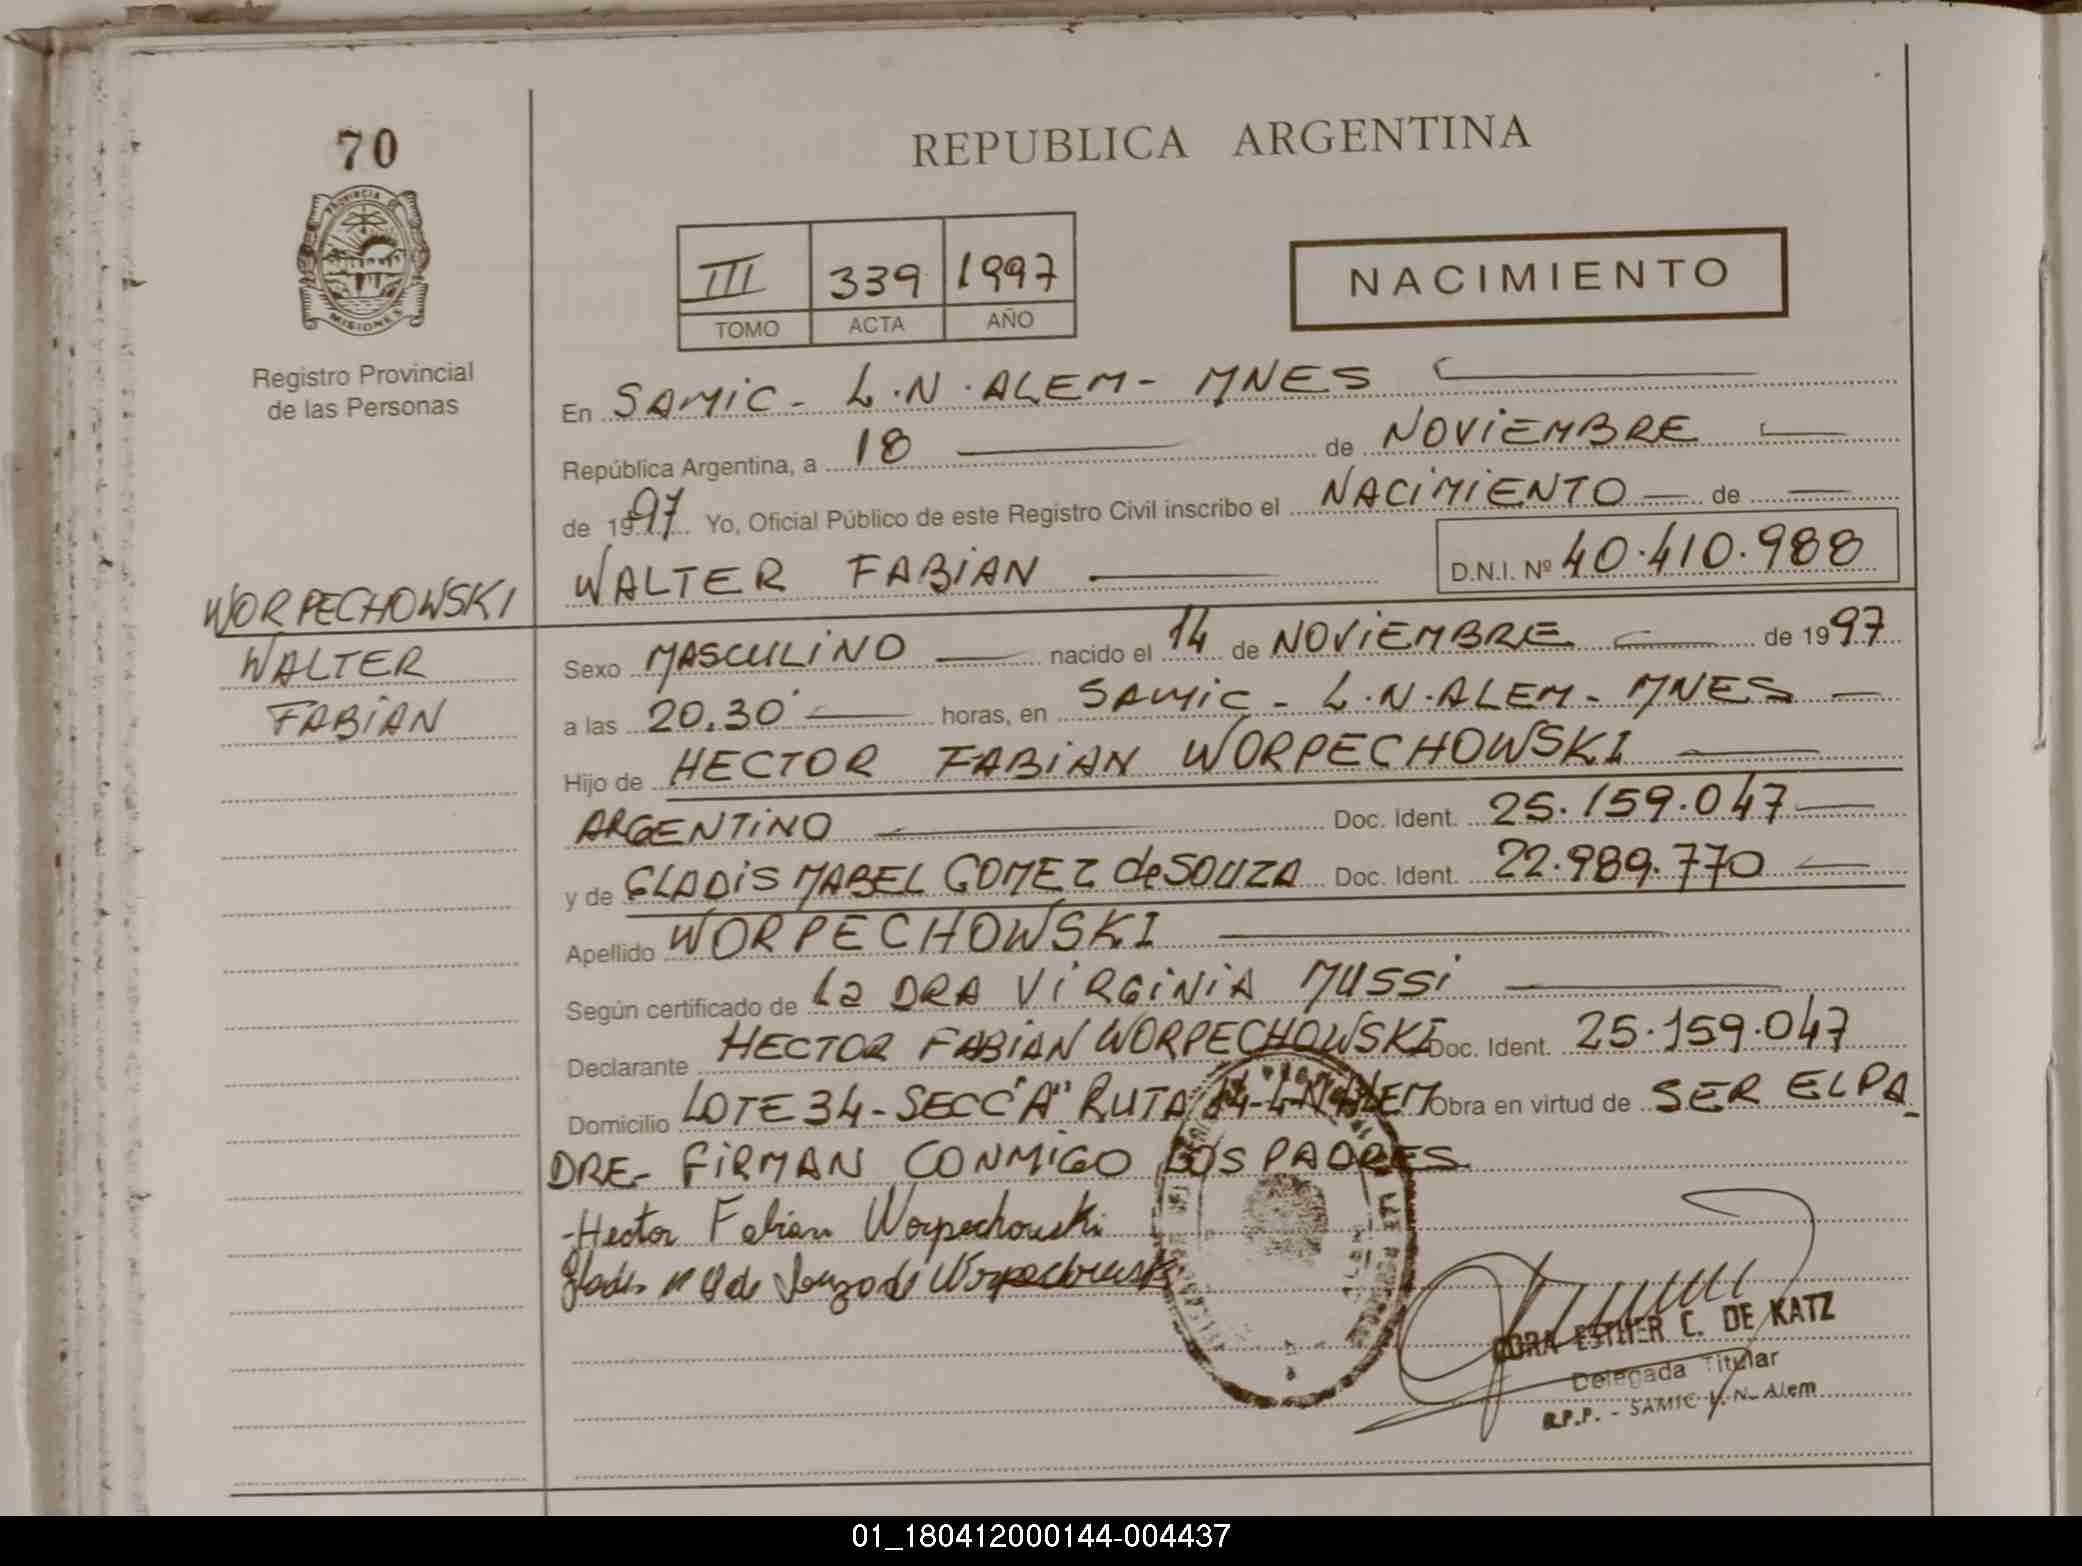 70
REPUBLICA ARGENTINA
PROVINCIA DE
MISIONES
III 339 1997
TOMO ACTA AÑO
NACIMIENTO
Registro Provincial
de las Personas
En SAMIC - L.N.ALEM - MNES
República Argentina, a 18 de NOVIEMBRE
de 1997 Yo, Oficial Público de este Registro Civil inscribo el NACIMIENTO de
WALTER FABIAN D.N.I. Nº 40.410.988
WORPECHOWSKI
WALTER
FABIAN
Sexo MASCULINO nacido el 14 de NOVIEMBRE de 1997
a las 20.30 horas, en SAMIC - L.N.ALEM - MNES
Hijo de HECTOR FABIAN WORPECHOWSKI
ARGENTINO Doc. Ident. 25.159.047
y de GLADIS MABEL GOMEZ de SOUZA Doc. Ident. 22.989.770
Apellido WORPECHOWSKI
Según certificado de La DRA VIRGINIA MUSSI
Declarante HECTOR FABIAN WORPECHOWSKI Doc. Ident. 25.159.047
Domicilio LOTE 34 - SECC "A" RUTA 14 - L.N.ALEM Obra en virtud de SER EL PA
DRE - FIRMAN CONMIGO LOS PADRES
- Hector Fabian Worpechowski
de Souza de Worpechowski
DORA ESTHER C. DE KATZ
Delegada Titular
R.P.P. - SAMIC L. N. Alem
01_180412000144-004437